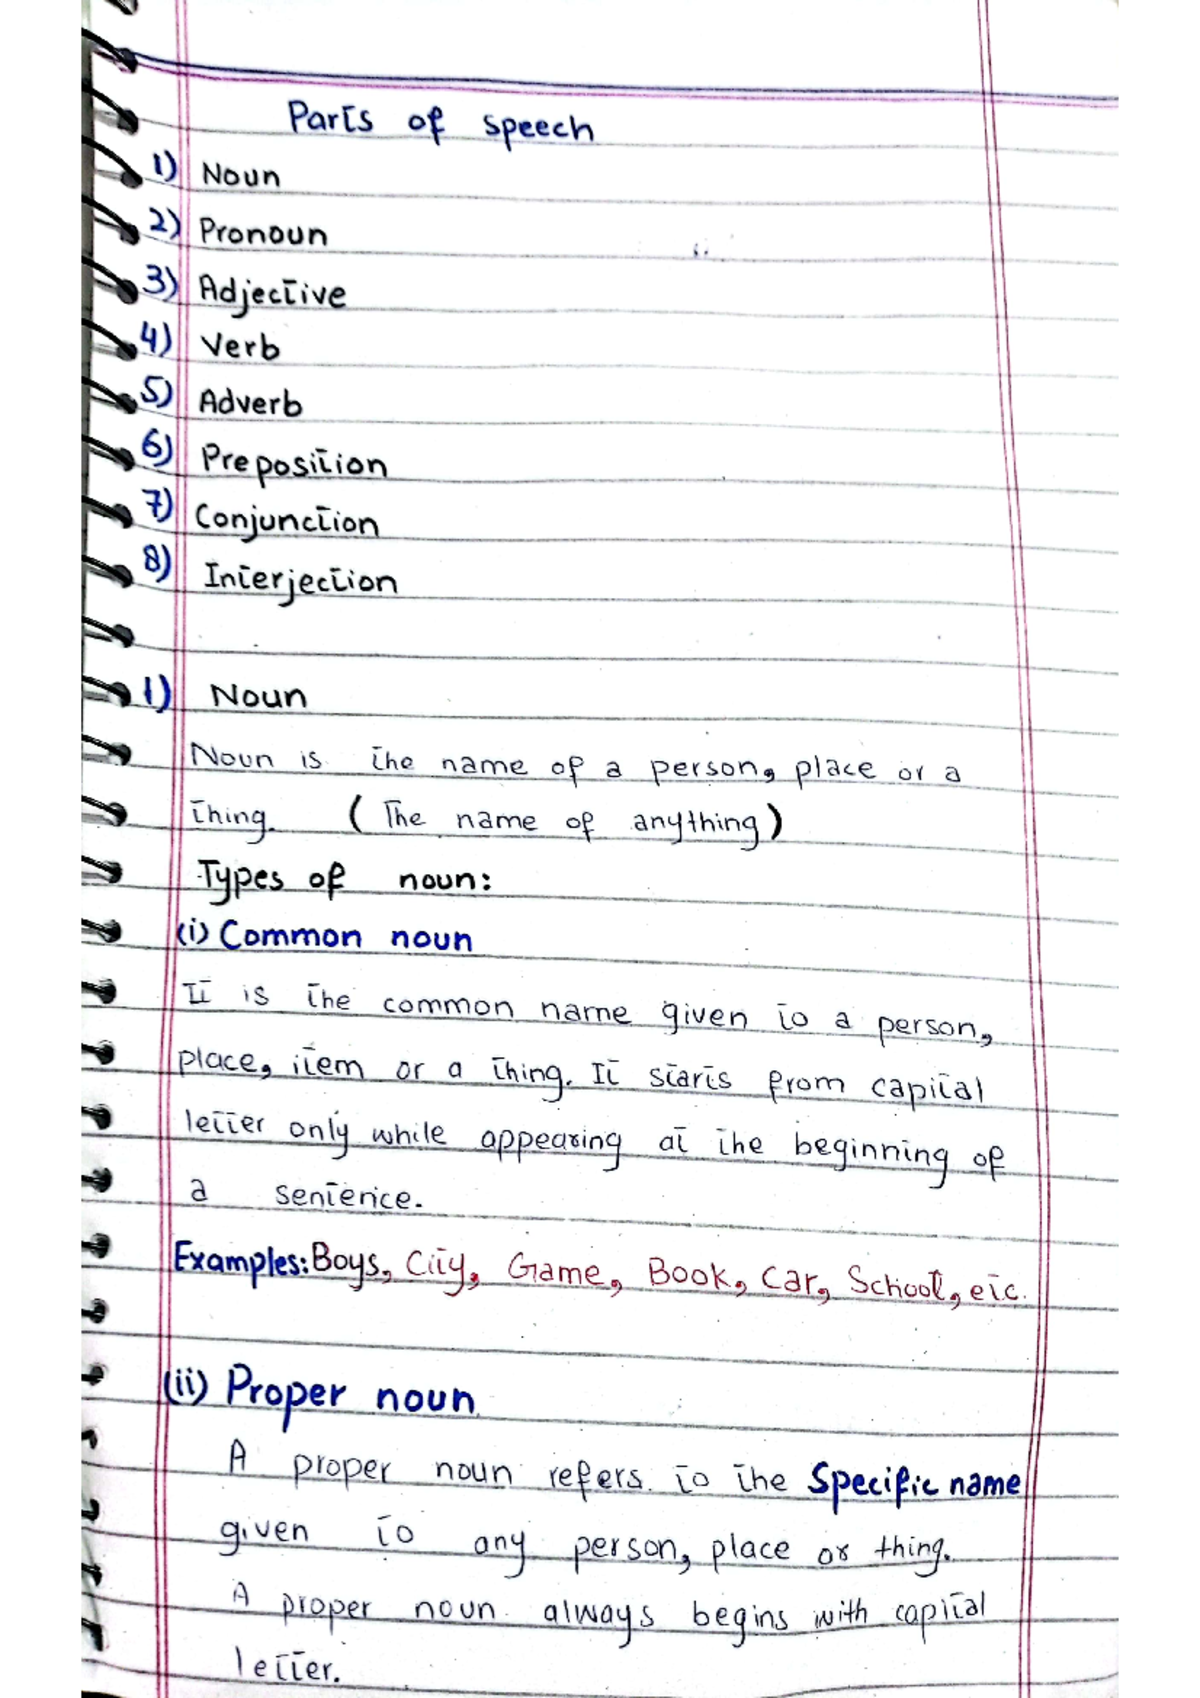 Parts of speech
1) Noun
2) Pronoun
3) Adjective
4) Verb
5) Adverb
6) Preposition
7) Conjunction
8) Interjection
1) Noun
Noun is the name of a person, place or a
thing. (The name of anything)
Types of noun:
(i) Common noun
It is the common name given to a person,
place, item or a thing. It starts from capital
letter only while appearing at the beginning of
a sentence.
Examples: Boys, City, Game, Book, Car, School, etc.
(ii) Proper noun
A proper noun refers to the Specific name
given to any person, place or thing.
A proper noun always begins with capital
letter.